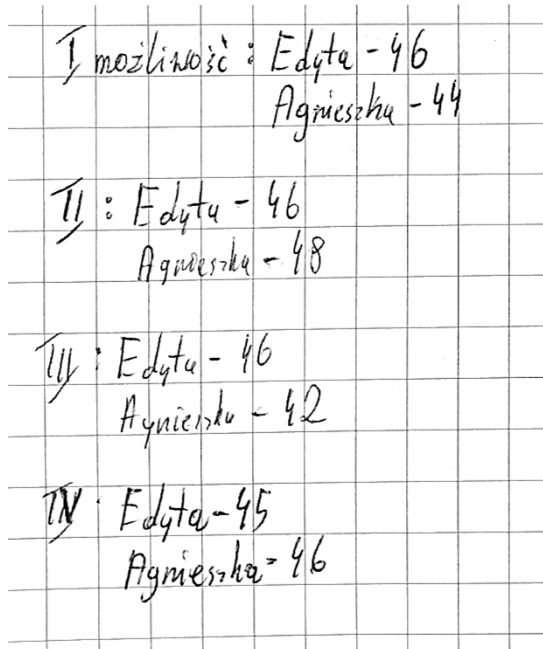 I możliwość: Edyta - 46
Agnieszka - 44
II: Edyta - 46
Agnieszka - 48
III: Edyta - 46
Agnieszka - 42
IV: Edyta - 45
Agnieszka - 46